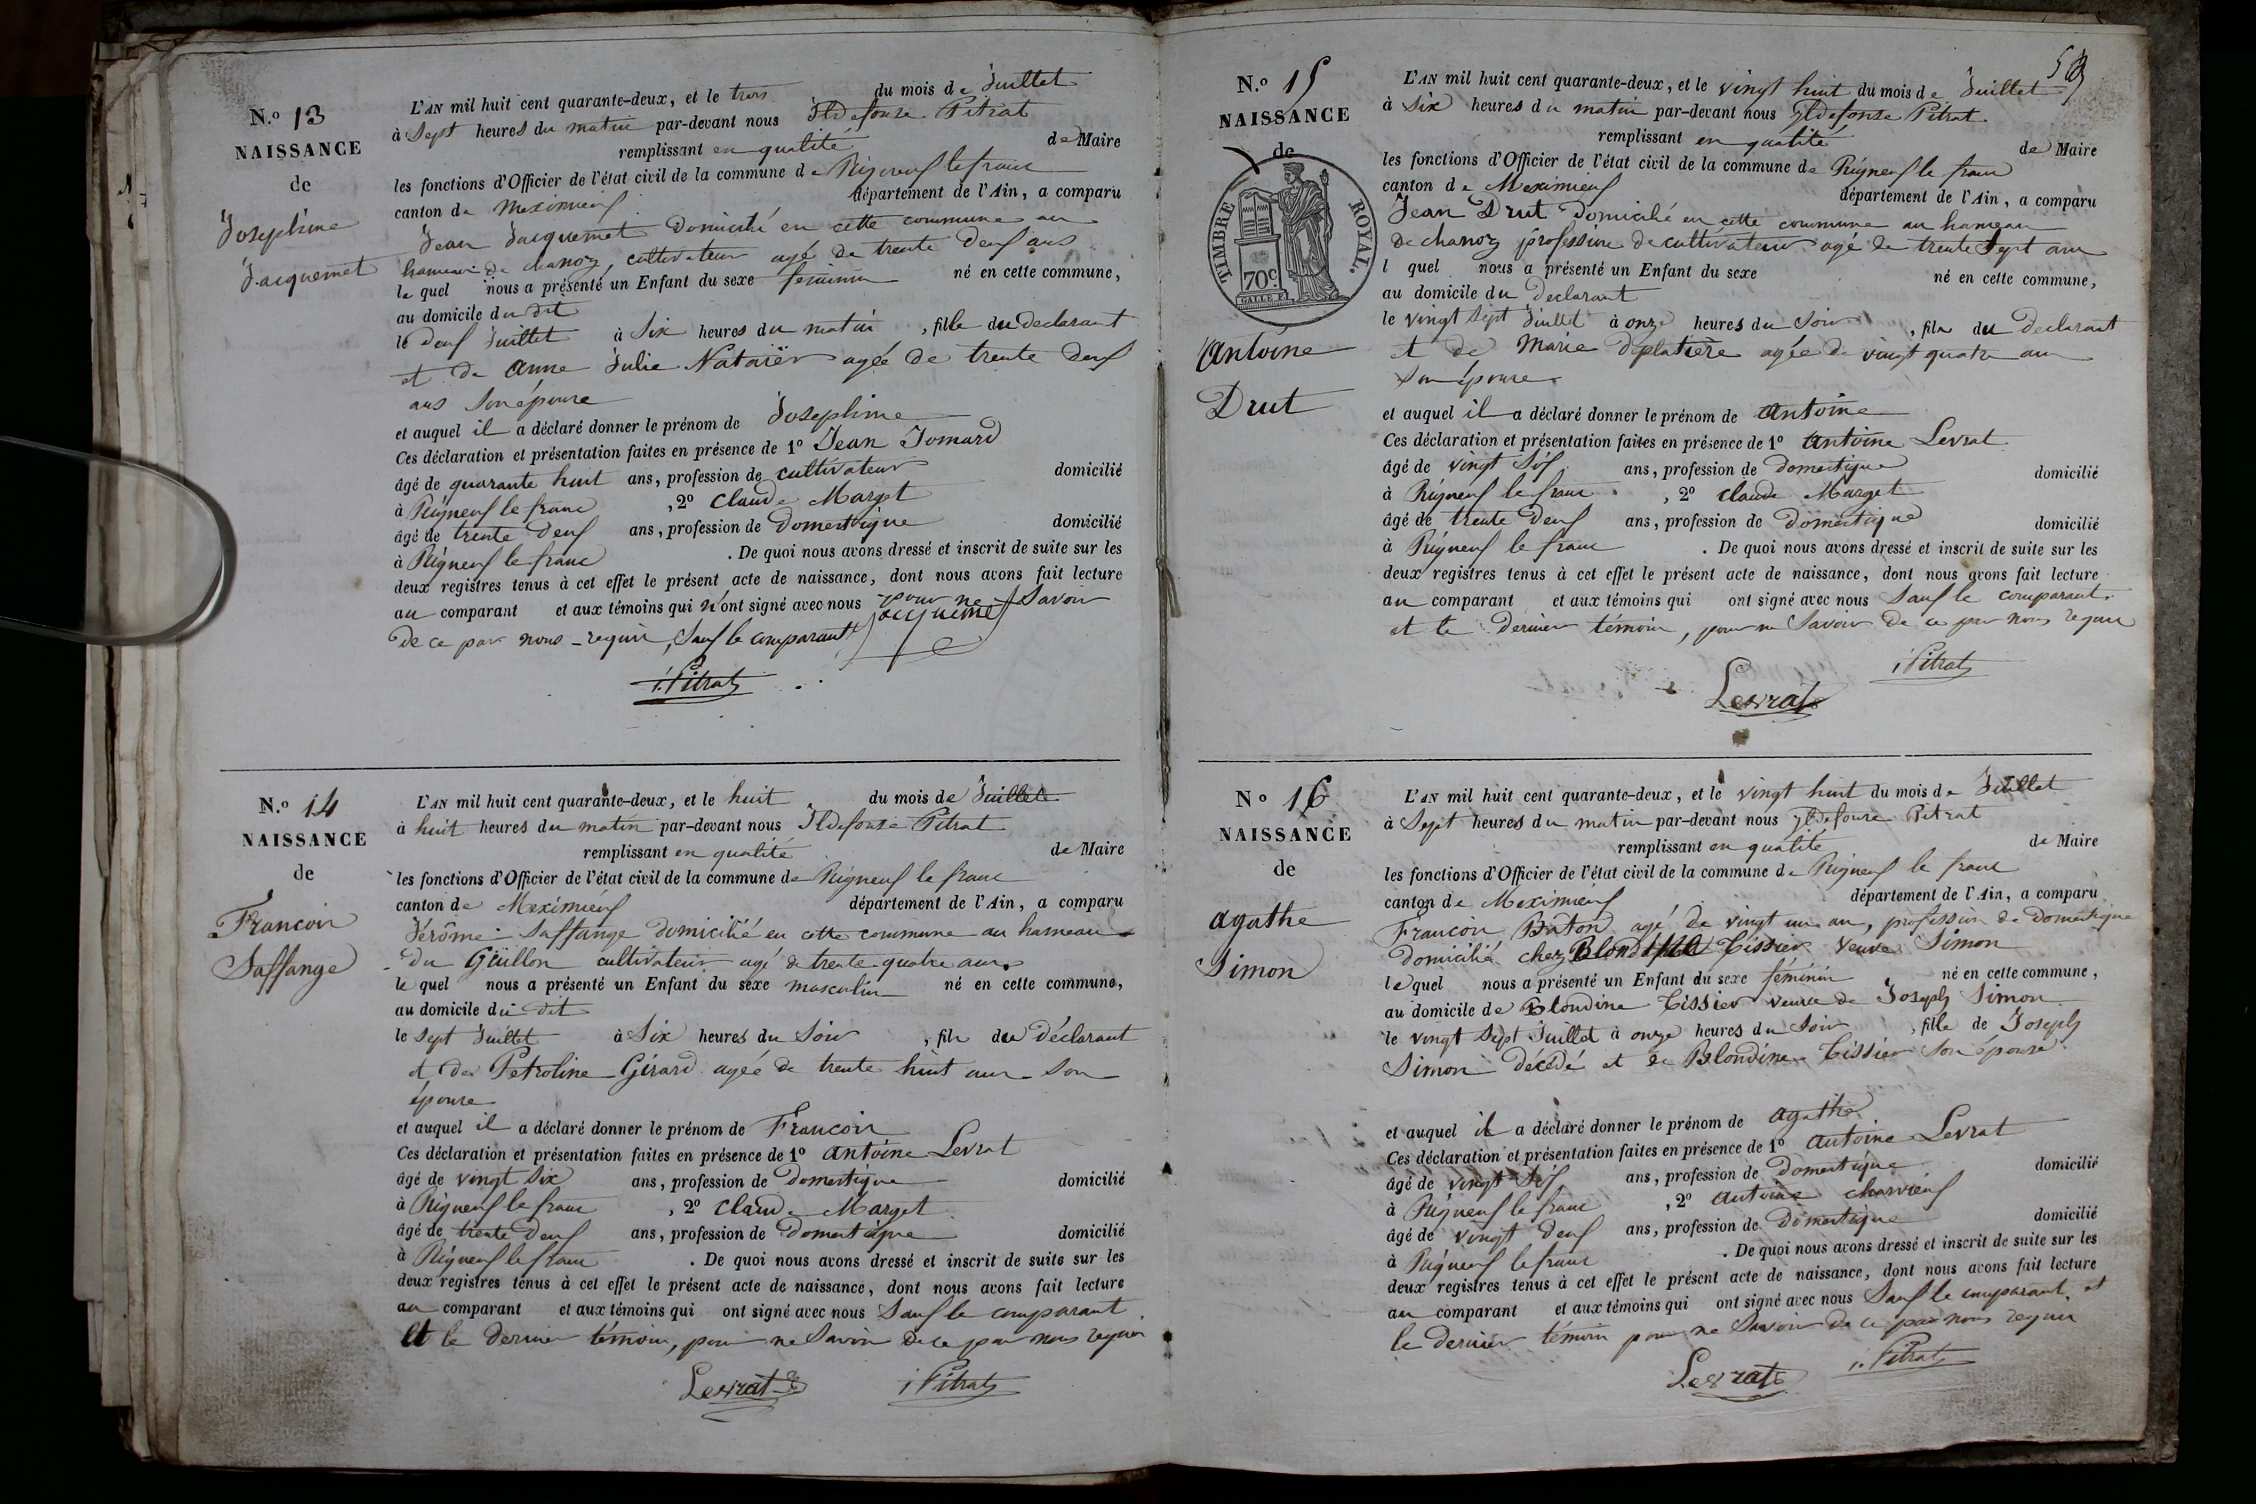 N.o 13
NAISSANCE
de
Josephine
Jacquemet
L'AN mil huit cent quarante-deux, et le trois du mois de Juillet
à Sept heures du matin par-devant nous Ildefonse Pitrat
remplissant en qualité de Maire
les fonctions d'Officier de l'état civil de la commune de Rigneux le franc
canton de Meximieux département de l'Ain, a comparu
Jean Jacquemet Domicilié en cette commune au
hameau de chanoz cultivateur agé de trente deux ans
le quel nous a présenté un Enfant du sexe feminin né en cette commune,
au domicile du dit
le deux Juillet à Six heures du matin, fille du declarant
et de Anne Julie agée de trente deux
ans Son épouse
et auquel il a déclaré donner le prénom de Josephine
Ces déclaration et présentation faites en présence de 1o Jean Jomard
âgé de quarante huit ans, profession de cultivateur domicilié
à Rigneux le franc, 2o Claude Marget
âgé de trente deux ans, profession de Domestique domicilié
à Rigneux le franc. De quoi nous avons dressé et inscrit de suite sur les
deux registres tenus à cet effet le présent acte de naissance, dont nous avons fait lecture
au comparant et aux témoins qui n'ont signé avec nous pour ne Savoir
de ce par nous requis, Sauf le comparant Jacquemet
i. Pitrat
N.o 14
NAISSANCE
de
Francois
Saffange
L'AN mil huit cent quarante-deux, et le huit du mois de Juillet
à huit heures du matin par-devant nous Ildefonse Pitrat
remplissant en qualité de Maire
les fonctions d'Officier de l'état civil de la commune de Rigneux le franc
canton de Meximieux département de l'Ain, a comparu
Jérôme Saffange domicilié en cette commune au hameau
du Guillon cultivateur agé de trente quatre ans
le quel nous a présenté un Enfant du sexe masculin né en cette commune,
au domicile du dit
le sept Juillet à Six heures du Soir, fils du déclarant
et de Petroline Girard agée de trente huit ans Son
épouse
et auquel il a déclaré donner le prénom de Francois
Ces déclaration et présentation faites en présence de 1o Antoine Levrat
âgé de vingt six ans, profession de Domestique domicilié
à Rigneux le franc, 2o Claude Marget
âgé de trente deux ans, profession de Domestique domicilié
à Rigneux le franc. De quoi nous avons dressé et inscrit de suite sur les
deux registres tenus à cet effet le présent acte de naissance, dont nous avons fait lecture
au comparant et aux témoins qui ont signé avec nous Sauf le comparant
et le dernier témoin, pour ne Savoir de ce par nous requis
Levrat i Pitrat
59
N.o 15
NAISSANCE
de
TIMBRE ROYAL.
70c.
Antoine
Drut
L'AN mil huit cent quarante-deux, et le vingt huit du mois de Juillet
à Six heures du matin par-devant nous Yldefonse Pitrat
remplissant en qualité de Maire
les fonctions d'Officier de l'état civil de la commune de Rigneux le franc
canton de Meximieux département de l'Ain, a comparu
Jean Drut Domicilié en cette commune au hameau
de chanoz profession de cultivateur agé de trente Sept ans
l quel nous a présenté un Enfant du sexe né en cette commune,
au domicile du Declarant
le vingt sept Juillet à onze heures du Soir, fils du Declarant
et de Marie Deplatière agée de vingt quatre ans
Son épouse
et auquel il a déclaré donner le prénom de Antoine
Ces déclaration et présentation faites en présence de 1o Antoine Levrat
âgé de vingt Six ans, profession de Domestique domicilié
à Rigneux le franc, 2o Claude Marget
âgé de trente Deux ans, profession de Domestique domicilié
à Rigneux le franc. De quoi nous avons dressé et inscrit de suite sur les
deux registres tenus à cet effet le présent acte de naissance, dont nous avons fait lecture
au comparant et aux témoins qui ont signé avec nous Sauf le comparant
et le dernier témoin, pour ne Savoir de ce par nous requis
i Pitrat
Levrat
No 16
NAISSANCE
de
agathe
Simon
L'AN mil huit cent quarante-deux, et le vingt huit du mois de Juillet
à Sept heures du matin par-devant nous Yldefonse Pitrat
remplissant en qualité de Maire
les fonctions d'Officier de l'état civil de la commune de Rigneux le franc
canton de Meximieux département de l'Ain, a comparu
Francois Baton agé de vingt un an, profession de Domestique
Domicilié chez Blondine Tissier veuve Simon
le quel nous a présenté un Enfant du sexe féminin né en cette commune,
au domicile de Blondine Tissier veuve de Joseph Simon
le vingt sept Juillet à onze heures du Soir, fille de Joseph
Simon Décédé et de Blondine Tissier Son épouse
et auquel il a déclaré donner le prénom de agathe
Ces déclaration et présentation faites en présence de 1o Antoine Levrat
âgé de vingt Six ans, profession de Domestique domicilié
à Rigneux le franc, 2o Antoine charvieux
âgé de vingt deux ans, profession de Domestique domicilié
à Rigneux le franc. De quoi nous avons dressé et inscrit de suite sur les
deux registres tenus à cet effet le présent acte de naissance, dont nous avons fait lecture
au comparant et aux témoins qui ont signé avec nous Sauf le comparant, et
le dernier témoin pour ne Savoir de ce par nous requis
Levrat i. Pitrat